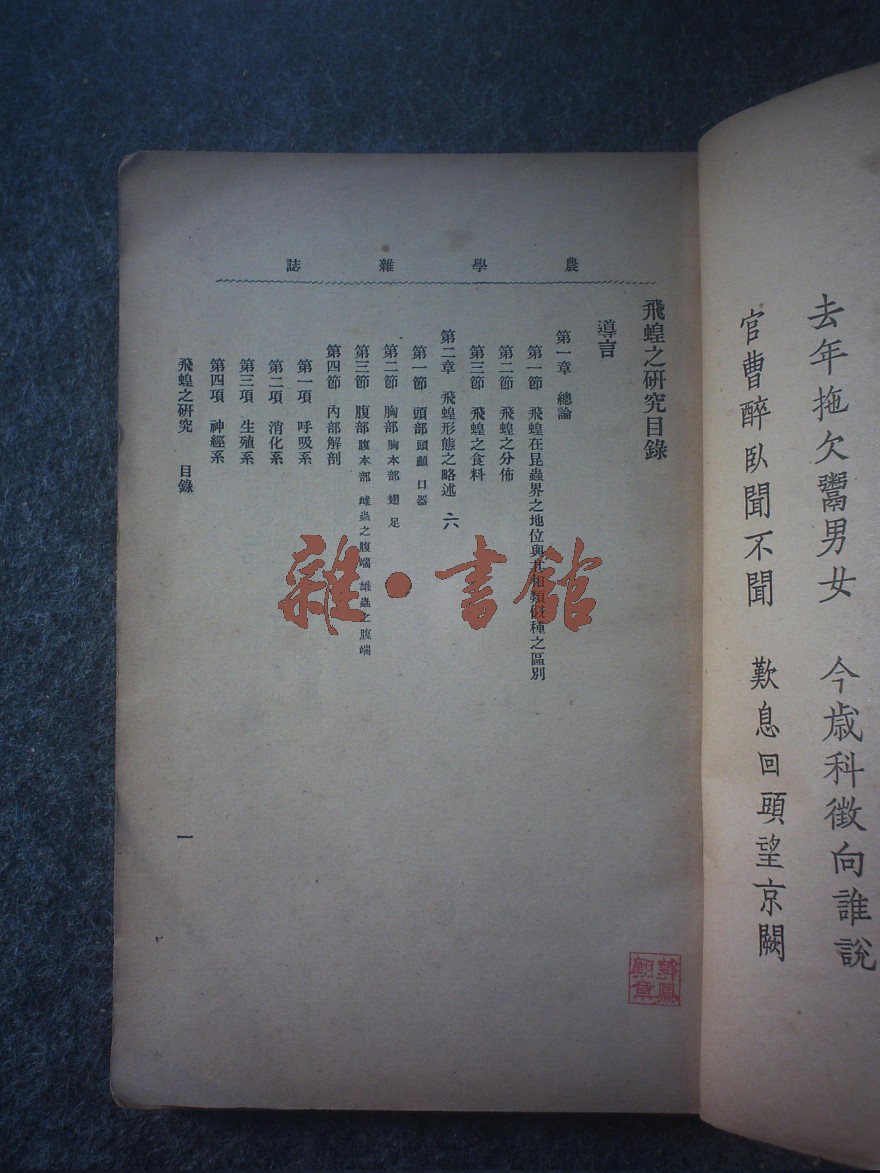 去年拖欠鬻男女　今歲科徵向誰說
官曹醉臥聞不聞　歎息回頭望京闕
農學雜誌
飛蝗之研究目錄
導言
第一章　總論
第一節　飛蝗在昆蟲界之地位與其相類似種之區別
第二節　飛蝗之分佈
第三節　飛蝗之食料
第二章　飛蝗形態之略述　六
第一節　頭部　頭顱　口器
第二節　胸部　胸本部　翅　足
第三節　腹部　腹本部　雌蟲之腹端　雄蟲之腹端
第四節　內部解剖
第一項　呼吸系
第二項　消化系
第三項　生殖系
第四項　神經系
飛蝗之研究　目錄
一
雜·書館